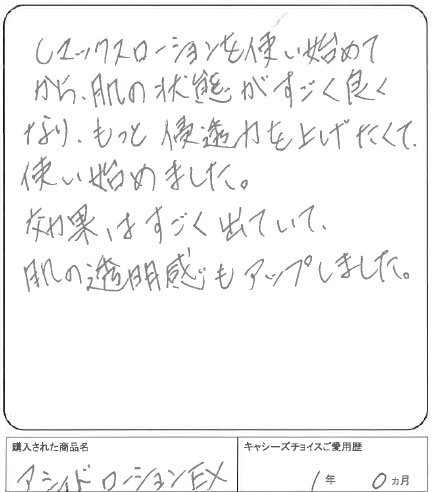 Cエックスローションを使い始めて
から、肌の状態がすごく良く
なり、もっと浸透力を上げたくて、
使い始めました。
効果はすごく出ていて、
肌の透明感もアップしました。
購入された商品名
キャシーズチョイスご愛用歴
アシィドローションEX
1年 0ヵ月